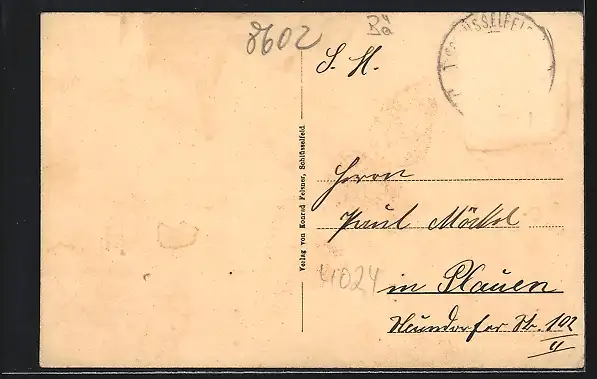 8602
B4a
S. H.
Herrn
Paul Möckel
in Plauen
Neundorfer Str. 102
II
41024
Verlag von Konrad Felsner, Schlüsselfeld.